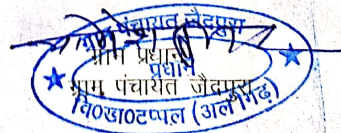 ग्राम पंचायत जैदपुरा
ग्राम प्रधान
प्रधान
ग्राम पंचायत जैदपुरा
वि०ख०टप्पल (अलीगढ़)